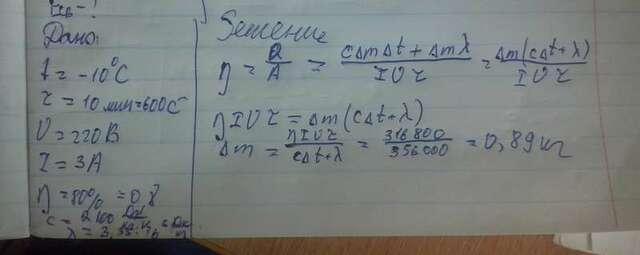 Дано:
t = -10°C
τ = 10 мин = 600 C
U = 220 В
I = 3 A
η = 80% = 0,8
c = 2100 Дж
λ = 3,
Решение
η = Q/A = (cΔmΔt + Δmλ)/(IUτ) = Δm(cΔt + λ)/(IUτ)
ηIUτ = Δm(cΔt + λ)
Δm = ηIUτ/(cΔt + λ) = 316800/356000 = 0,89 кг